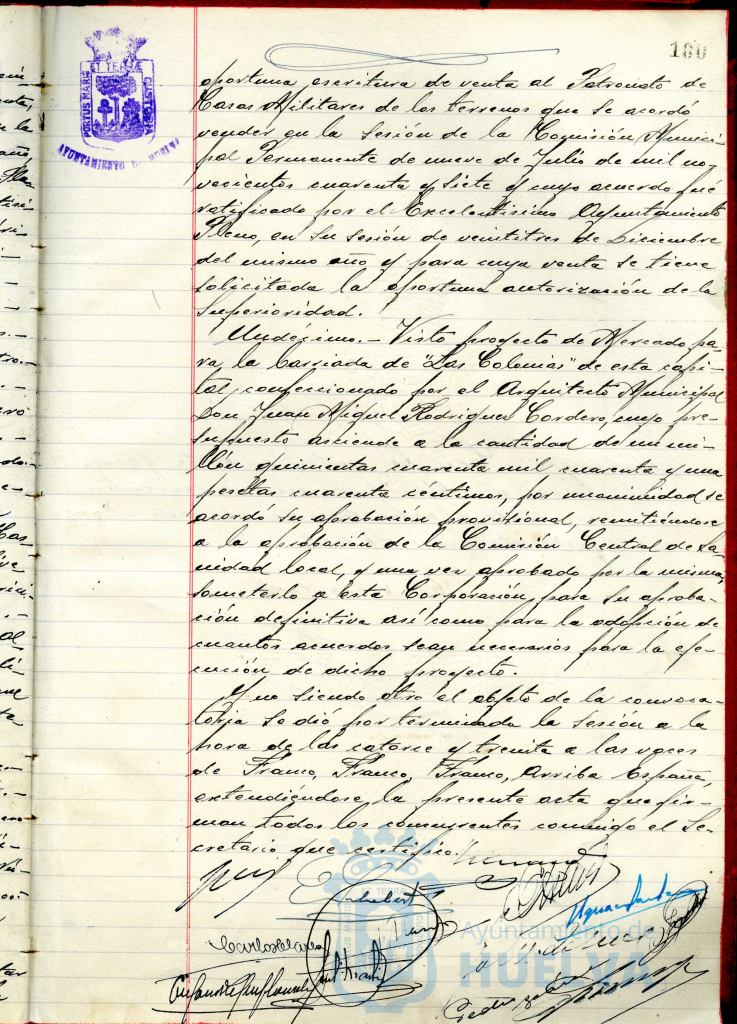 100
PORTUS MARIS ET TERRAE CUSTODIA
AYUNTAMIENTO DE HUELVA
oportuna escritura de venta al Patronato de
Casas Militares de los terrenos que se acordó
vender en la Sesión de la Comisión Munici-
pal Permanente de nueve de Julio de mil no-
vecientos cuarenta y siete y cuyo acuerdo fué
ratificado por el Excelentísimo Ayuntamiento
Pleno, en su sesión de veintitres de Diciembre
del mismo año y para cuya venta se tiene
solicitada la oportuna autorización de la
Superioridad.
Undécimo.- Visto proyecto de Mercado pa-
ra la barriada de "Las Colonias" de esta capi-
tal, confeccionado por el Arquitecto Municipal
Don Juan Miguel Rodriguez Cordero, cuyo pre-
supuesto asciende a la cantidad de un mi-
llón quinientas cuarenta mil cuarenta y una
pesetas cuarenta céntimos, por unanimidad se
acordó su aprobación provisional, remitiéndose
a la aprobación de la Comisión Central de Sa-
nidad local, y una vez aprobado por la misma,
someterlo a esta Corporación, para su aproba-
ción definitiva así como para la adopción de
cuantos acuerdos sean necesarios para la eje-
cución de dicho proyecto.
Y no siendo otro el objeto de la convoca-
toria se dió por terminada la Sesión a la
hora de las catorce y treinta a las voces
de Franco, Franco, Franco, Arriba España,
extendiéndose la presente acta que fir-
man todos los concurrentes conmigo el Se-
cretario que certifico.
Ayuntamiento de
HUELVA